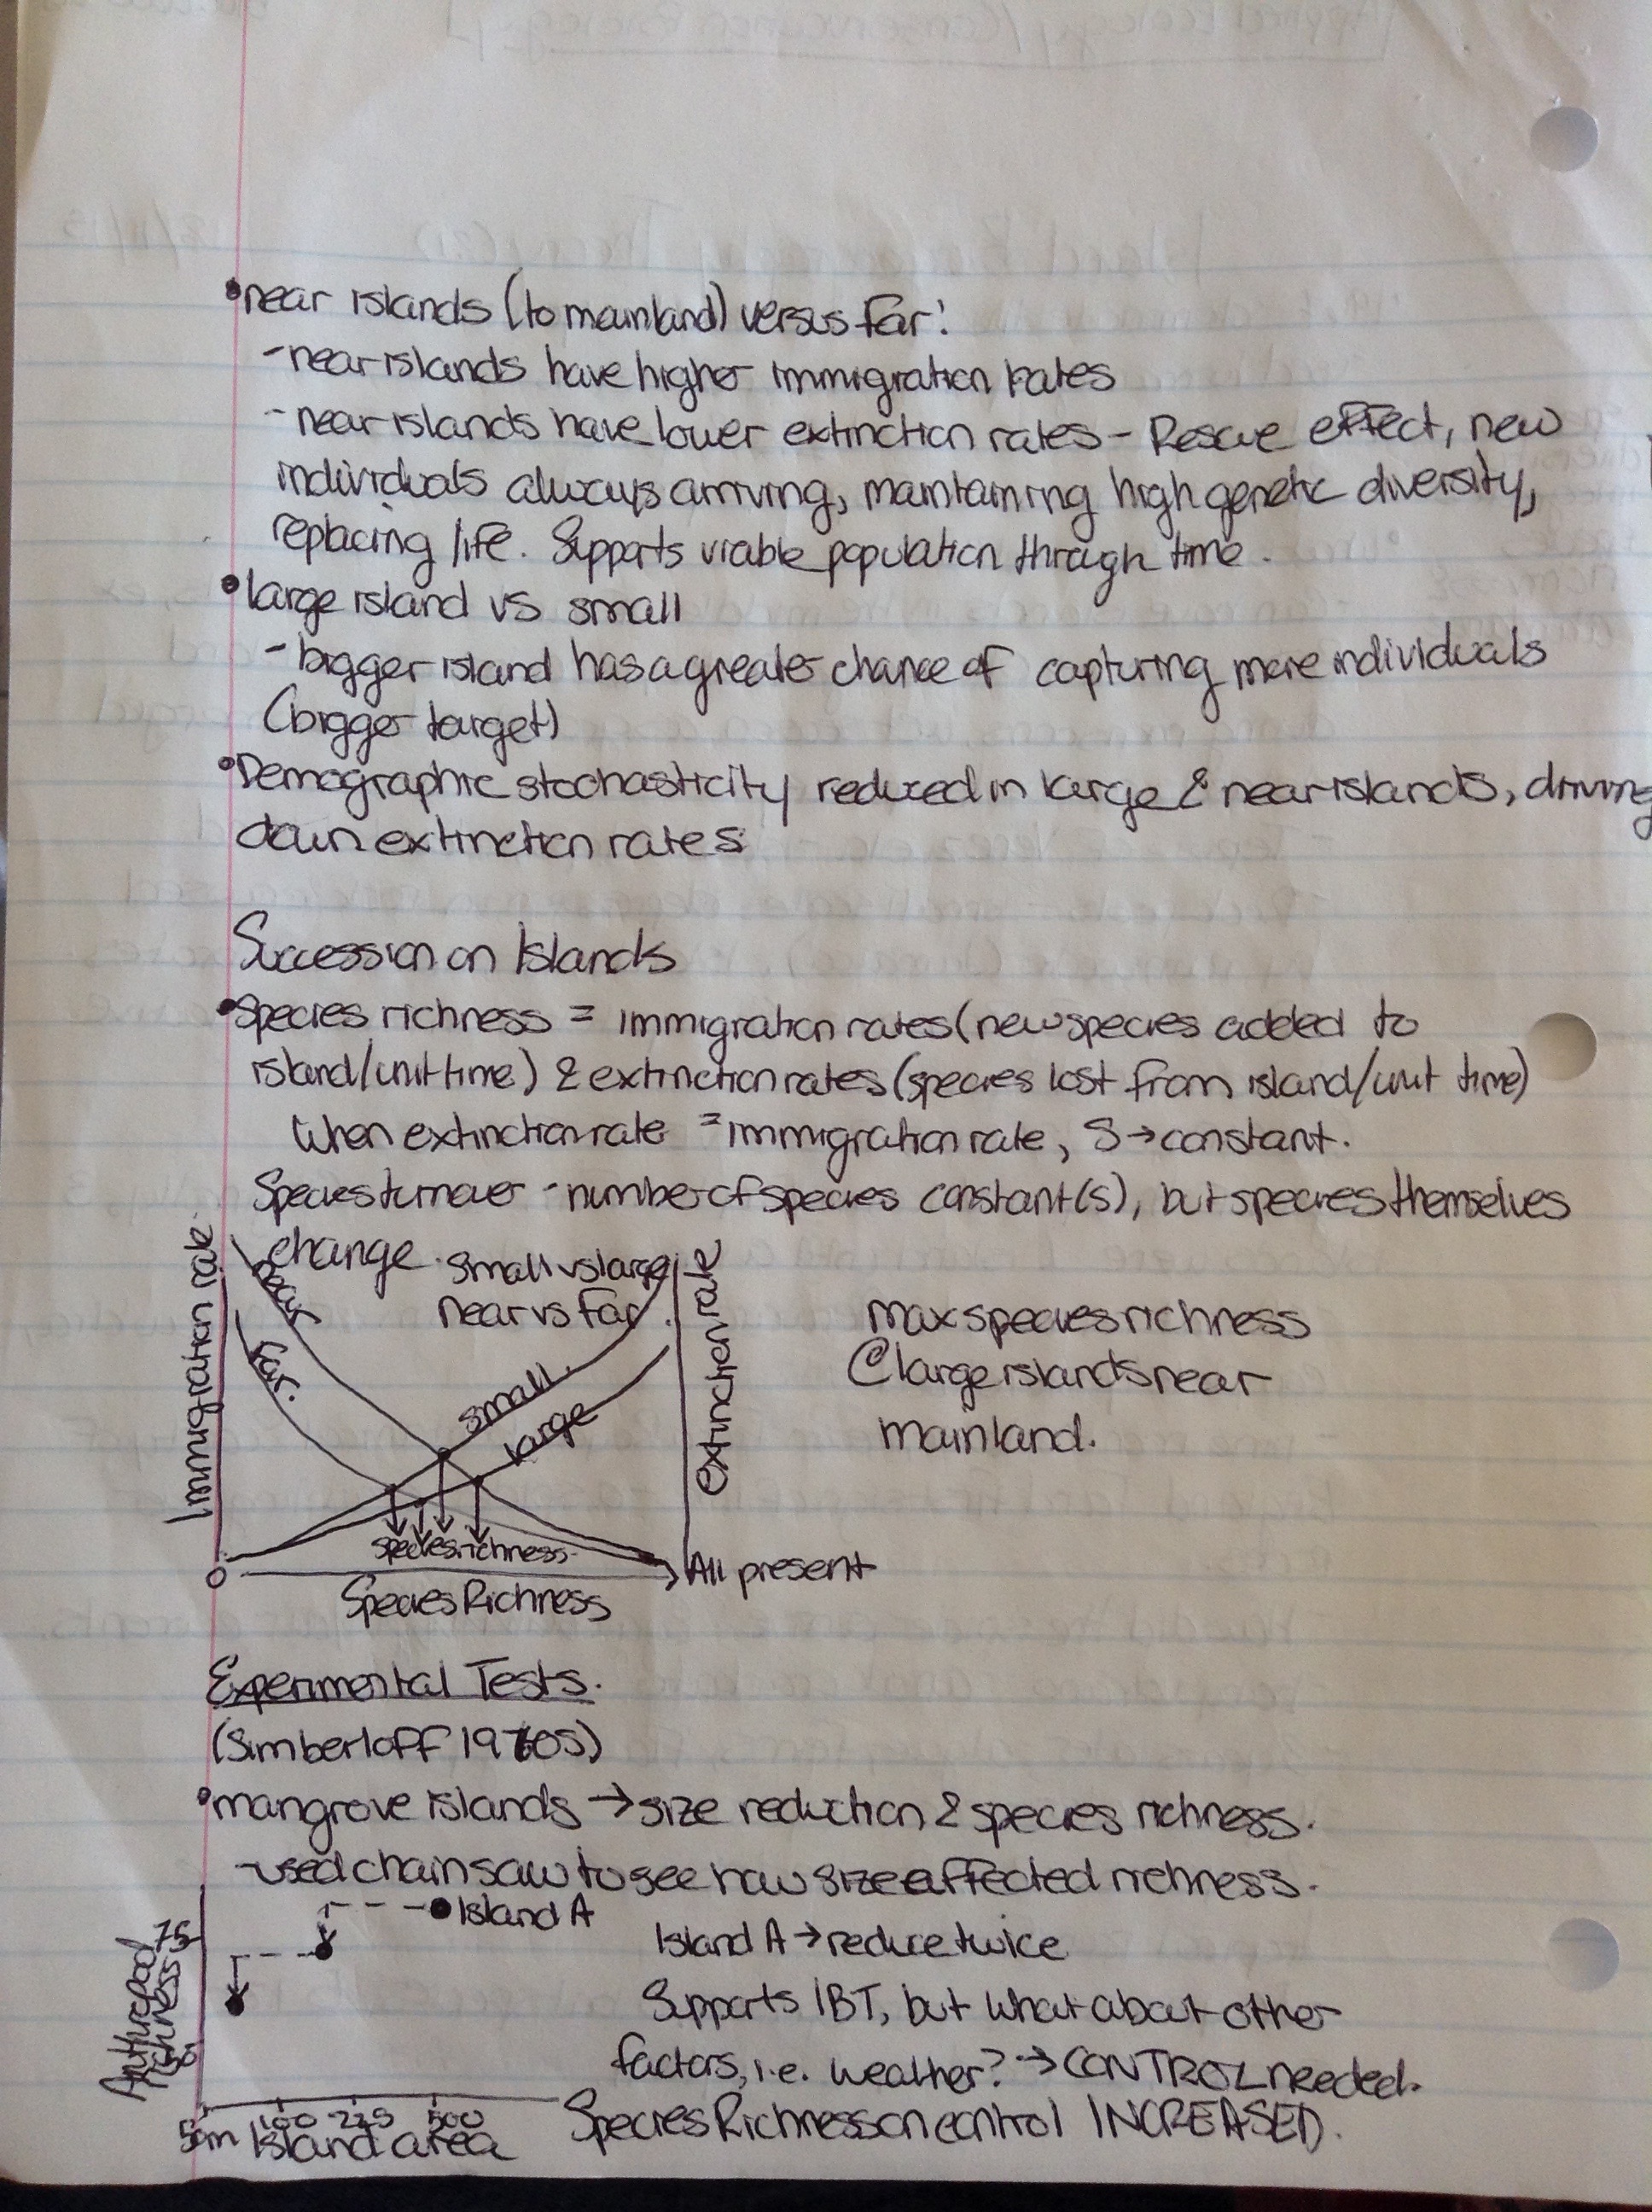 •near islands (to mainland) versus far:
-near islands have higher immigration rates
-near islands have lower extinction rates - Rescue effect, new
individuals always arriving, maintaining high genetic diversity,
replacing life. Supports viable population through time.
•large island vs small
-bigger island has a greater chance of capturing more individuals
(bigger target)
•Demographic stochasticity reduced in large & near islands, driving
down extinction rates
Succession on Islands
•Species richness = immigration rates (new species added to
island/unit time) & extinction rates (species lost from island/unit time)
When extinction rate = immigration rate, S→constant.
Species turnover - number of species constant (s), but species themselves
change.
Small vs large
near vs far.
Immigration rate
near
far.
small.
large
extinction rate
max species richness
@ large islands near
mainland.
species richness
0
All present
Species Richness
Experimental Tests.
(Simberloff 1970s)
•mangrove islands → size reduction & species richness.
-used chainsaw to see how size affected richness.
Island A
75
50
Arthropod
richness
Island A → reduce twice
Supports IBT, but what about other
factors, i.e. weather? → CONTROL needed.
Species Richness on control INCREASED.
50m 100 225 500
Island area